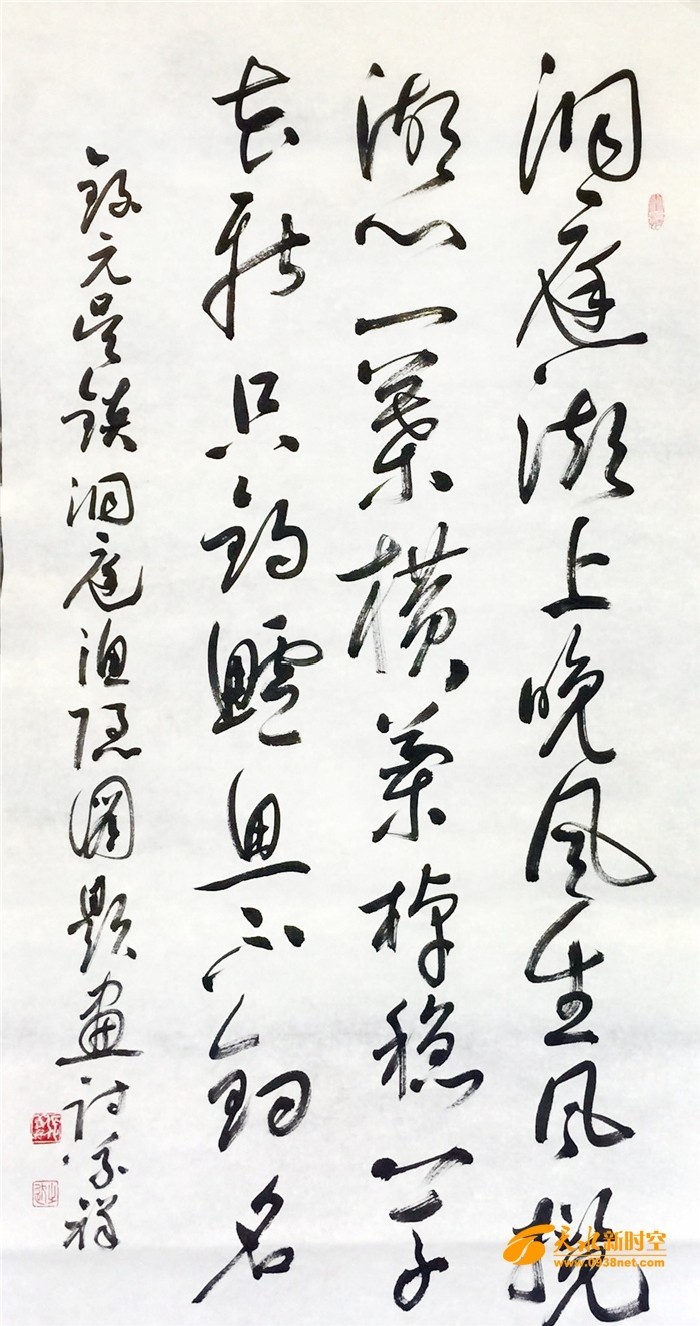 洞庭湖上晚风生风搅
湖心一葉横兰棹稳草
衣新只钓鲈鱼不钓名
錄元吴镇洞庭渔隐图题画诗
天水新时空
www.0938net.com